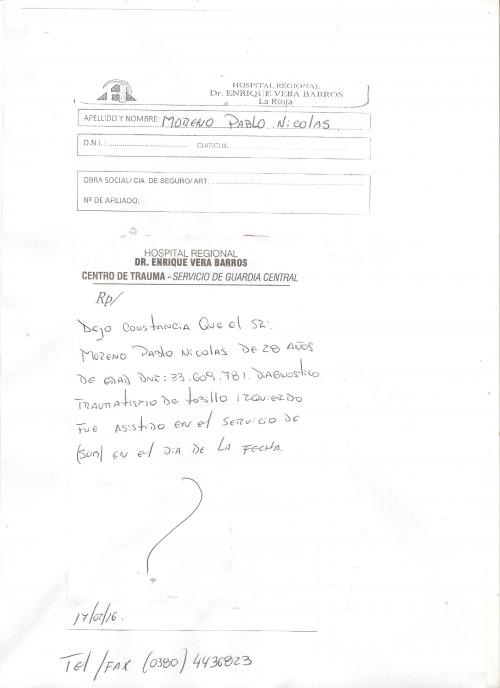 HOSPITAL REGIONAL
Dr. ENRIQUE VERA BARROS
La Rioja
APELLIDO Y NOMBRE: MORENO PABLO NICOLAS
D.N.I. : CUIT/CUIL
OBRA SOCIAL/ CIA. DE SEGURO/ ART
Nº DE AFILIADO:
HOSPITAL REGIONAL
DR. ENRIQUE VERA BARROS
CENTRO DE TRAUMA - SERVICIO DE GUARDIA CENTRAL
Rp/
DEJO CONSTANCIA QUE EL SR:
MORENO PABLO NICOLAS DE 28 AÑOS
DE EDAD DNI: 33.609.781. DIAGNOSTICO
TRAUMATISMO DE TOBILLO IZQUIERDO
FUE ASISTIDO EN EL SERVICIO DE
(SUM) EN EL DIA DE LA FECHA.
17/02/16.
TEL /FAX (0380) 4436823